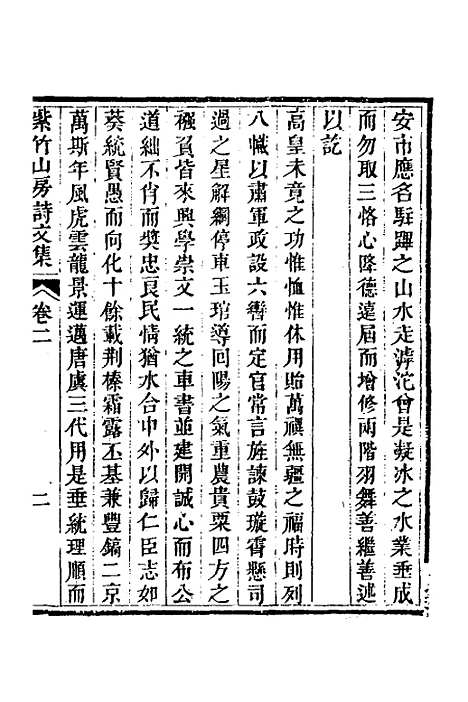 安市應名駐蹕之山水走滹沱曾是凝冰之水業垂成
而勿取三恪心降德遠屆而增修兩階羽舞善繼善述
以訖
高皇未竟之功惟恤惟休用貽萬禩無疆之福時則列
八幟以肅軍政設六轡而定官常言旌諫鼓璇霄懸司
過之星解綱停車玉琯導回陽之氣重農貴粟四方之
襁負皆來興學崇文一統之車書並建開誠心而布公
道絀不肖而奬忠良民情猶水合中外以歸仁臣志如
葵統賢愚而向化十餘載荆榛霜露丕基兼豐鎬二京
萬斯年風虎雲龍景運邁唐虞三代用是垂統理順而
紫竹山房詩文集 卷二 二